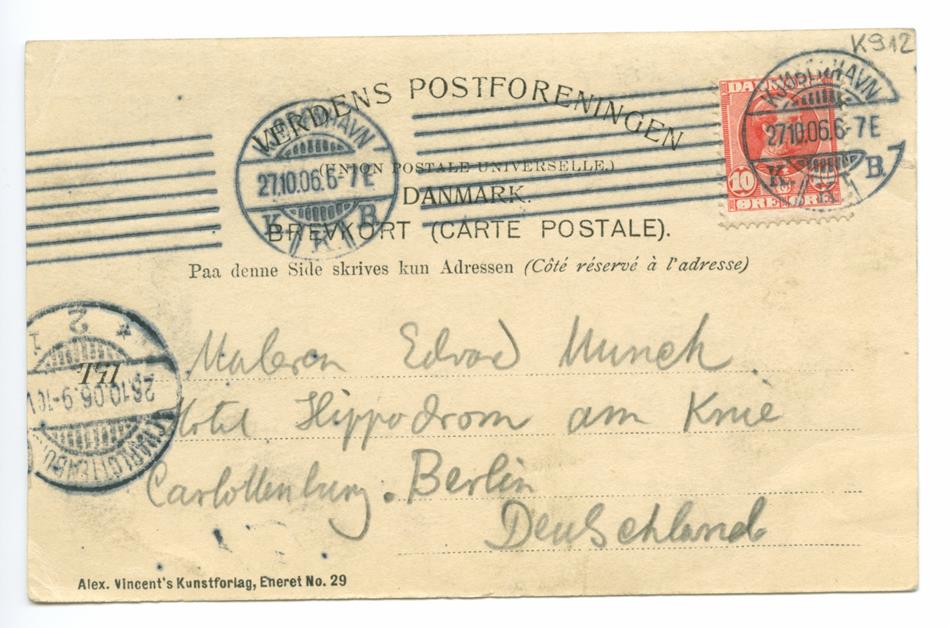 K912
VERDENS POSTFORENINGEN
(UNION POSTALE UNIVERSELLE.)
DANMARK.
BREVKORT (CARTE POSTALE).
Paa denne Side skrives kun Adressen (Côté réservé à l'adresse)
KJØBENHAVN
27.10.06.6-7E
K. B.
DANMARK
10
ØRE
KJØBENHAVN
27.10.06.6-7E
K. B.
2
1
26.10.06.9-10V
CHARLOTTENBU
151.
Maleren Edvard Munch
Hotel Hippodrom am Knie
Carlottenburg. Berlin
Deutschland
Alex. Vincent's Kunstforlag, Eneret No. 29